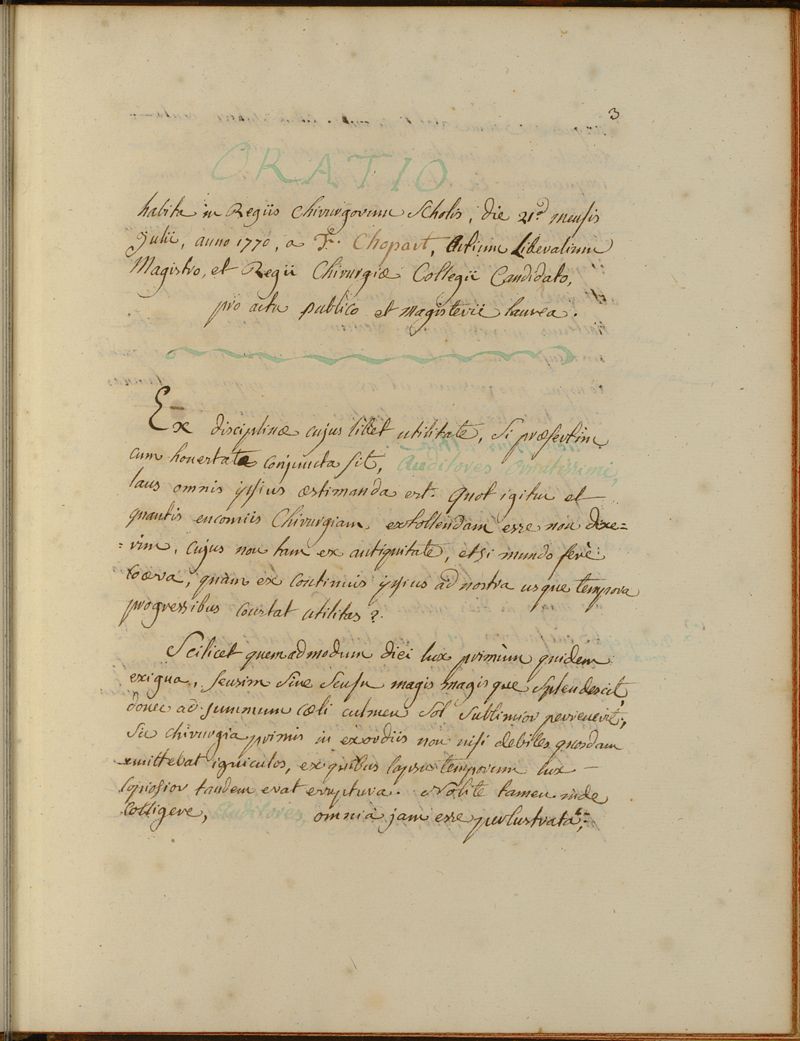 3
ORATIO
habita in Regiis Chirurgorum Scholis, die 21.a mensis
Julii, anno 1770, a Fr. Chopart, Artium Liberalium
Magistro, et Regii Chirurgiæ Collegii Candidato,
pro actu publico et magisterii laurea.
Ex disciplinæ cujus libet utilitate, si præsertim
cum honestate conjuncta sit, Auditores Ornatissimi,
laus omnis ipsius æstimanda est. Quot igitur et
quantis encomiis Chirurgiam extollendam esse non dixe=
=rim, cujus non tam ex antiquitate, etsi mundo ferè
coæva, quàm ex continuis ipsius ad nostra usque tempora
progressibus constat utilitas?
Scilicet quemadmodum diei lux primùm quidem
exigua, sensim sine sensu magis magisque splendescit,
donec ad summum cæli culmen sol sublimior pervenerit;
sic chirurgia primis in exordiis non nisi debiles quosdam
emittebat igniculos, ex quibus lapsu temporum lux —
copiosior tandem erat eruptura. Nolite tamen inde
colligere, Auditores, omnia jam esse perlustrata;